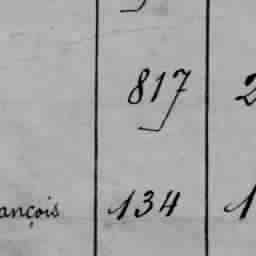 817 2
ançois 134 1